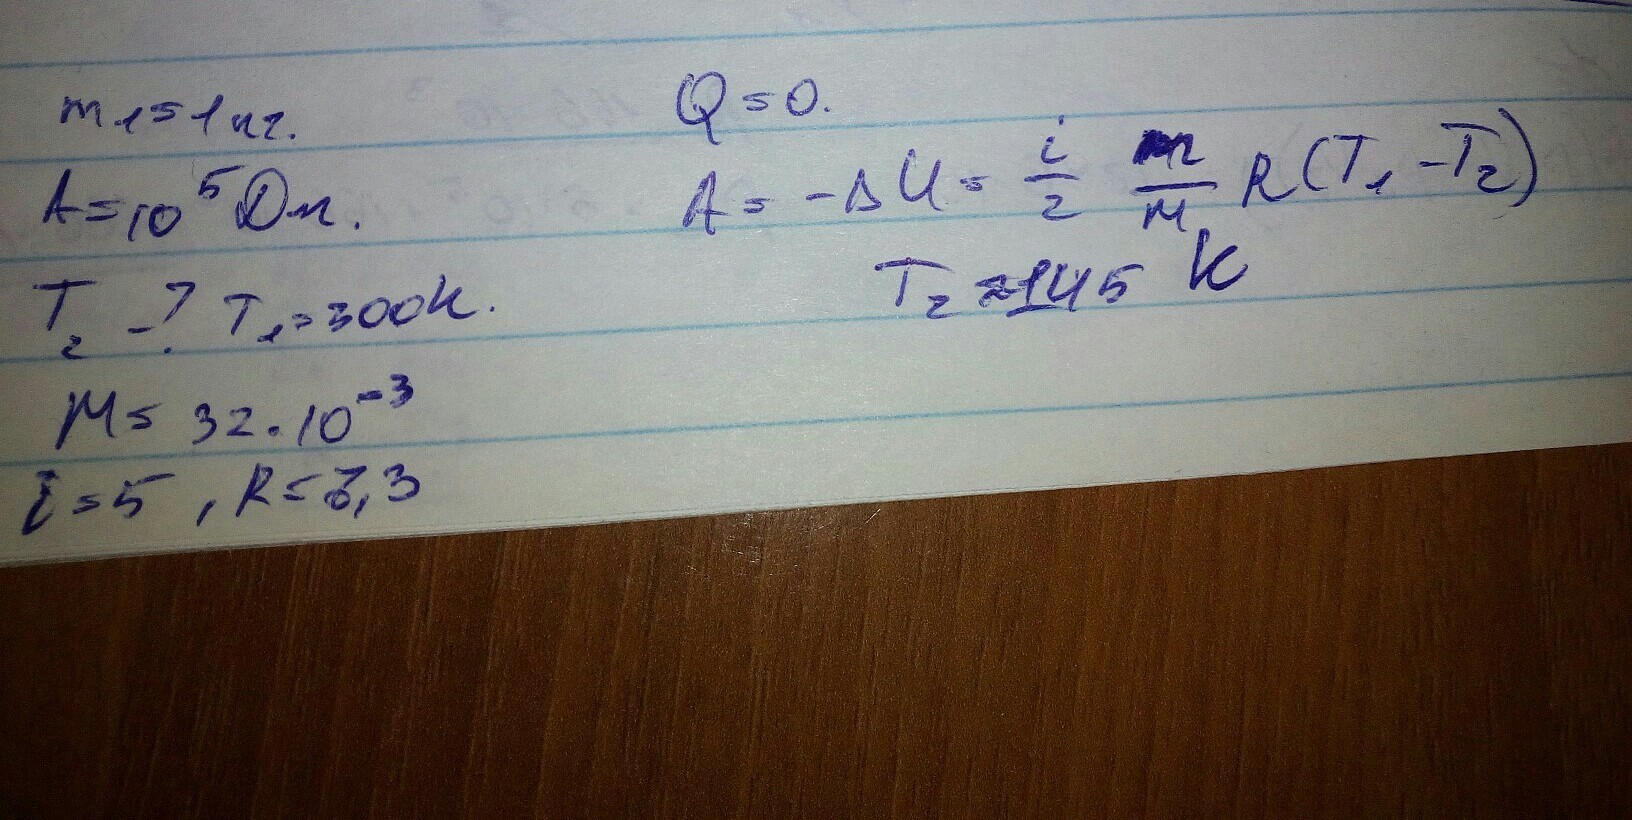 m₁ = 1 кг.
A = 10⁵ Дж.
T₂ -? T₁ = 300К.
M = 32 · 10⁻³
i = 5 , R = 8,3
Q = 0.
A = -ΔU = i/2 m/M R (T₁ - T₂)
T₂ ≈ 145 К